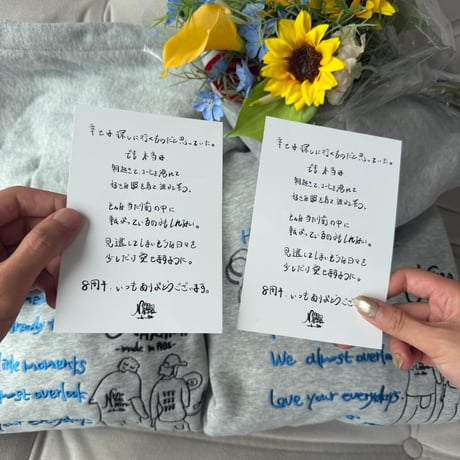 幸せは探しに行くものだと思っていた。
でも本当は
朝起きて、コーヒーを淹れて
好きな服を着て過ごす。
そんな当たり前の中に
転がっているのかもしれない。
見逃してしまいそうな日々を
少しだけ愛せますように。
8周年、いつもありがとうございます。
幸せは探しに行くものだと思っていた。
でも本当は
朝起きて、コーヒーを淹れて
好きな服を着て過ごす。
そんな当たり前の中に
転がっているのかもしれない。
見逃してしまいそうな日々を
少しだけ愛せますように。
8周年、いつもありがとうござい
moments
almost overlook
We almost overlook
Love your everydays.